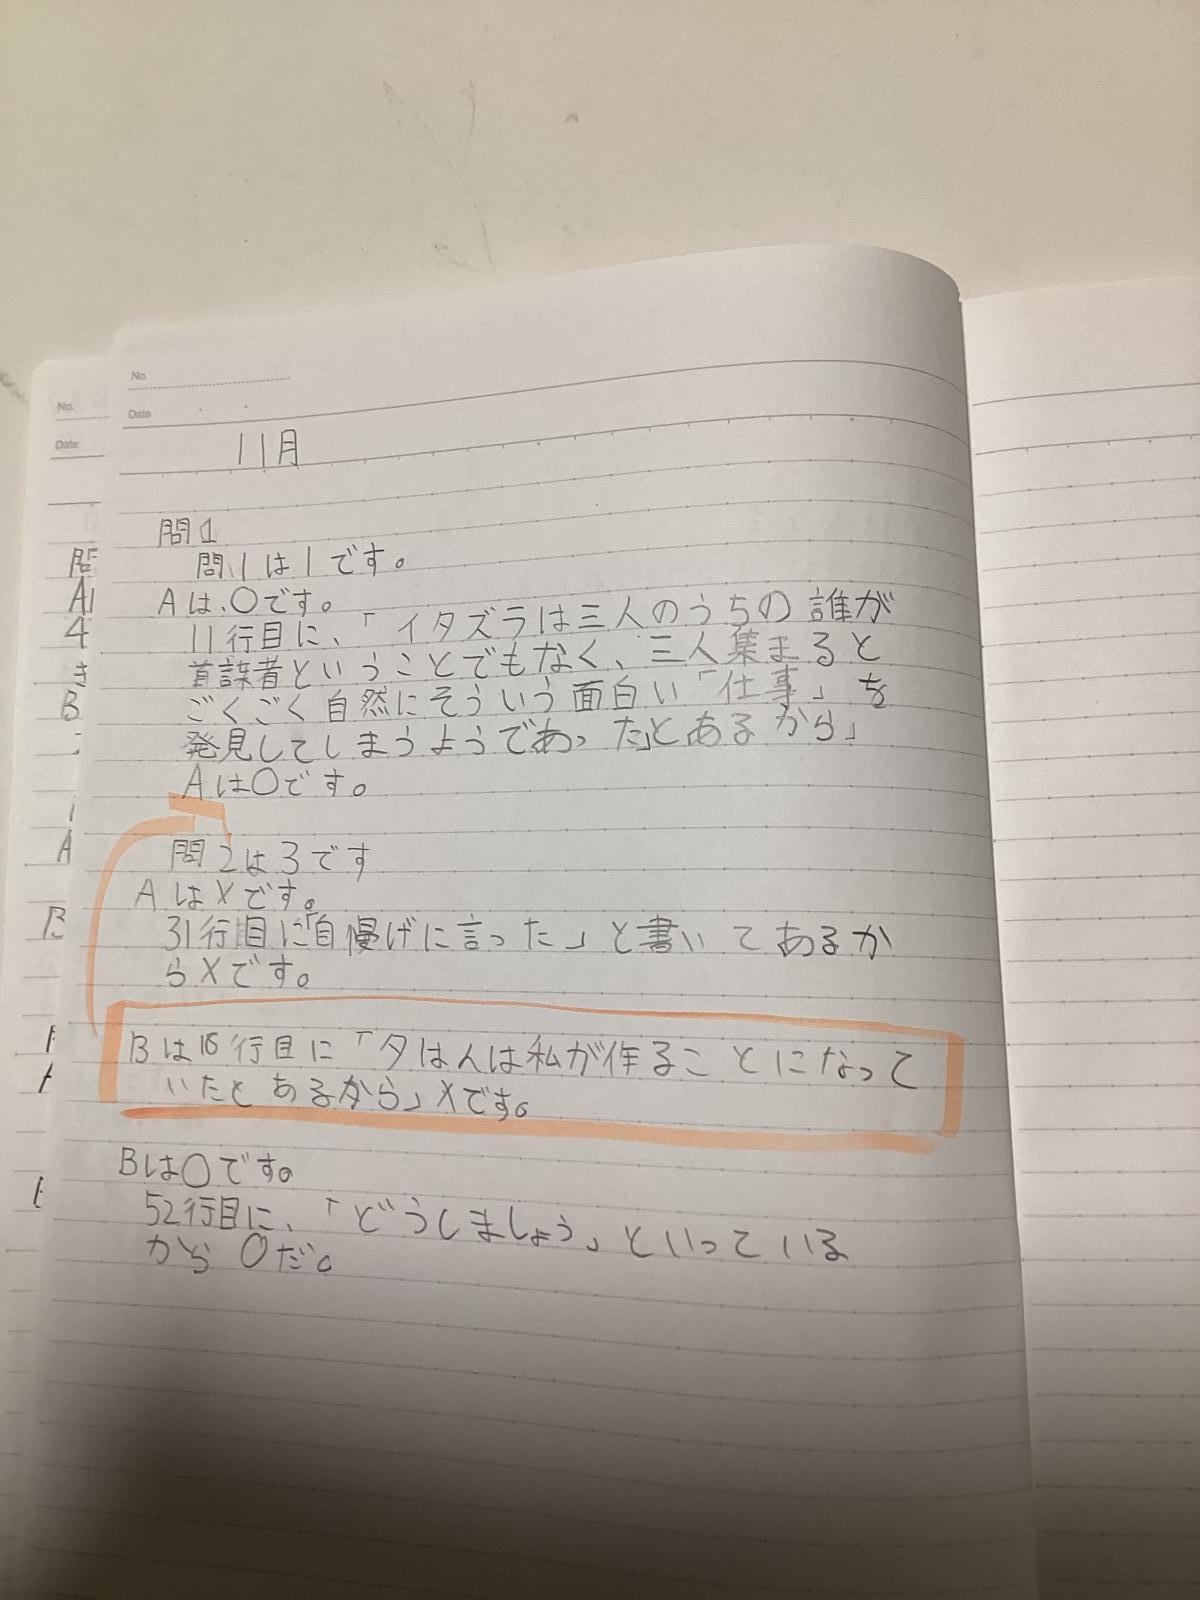 No.
Date
11月
問1
問1は1です。
Aは、○です。
11行目に、「イタズラは三人のうちの誰が
首謀者ということでもなく、三人集まると
ごくごく自然にそういう面白い「仕事」を
発見してしまうようであった」とあるから」
Aは○です。
問2は3です
AはXです。
31行目に「自慢げに言った」と書いてあるか
らXです。
Bは18行目に「夕はんは私が作ることになって
いたとあるから」Xです。
Bは○です。
52行目に、「どうしましょう」といっている
から○だ。
No.
Date
問
A
4
き
B
A
B